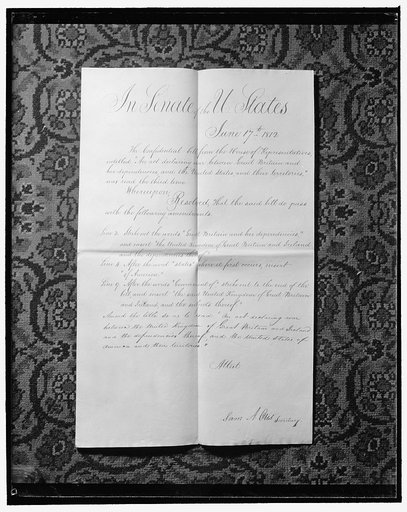 In Senate of the U States
June 17th 1812.
The Confidential bill from the House of Representatives,
entitled "An act declaring war between Great Britain and
her dependencies, and the United States and their territories"
was read the third time
Whereupon,
Resolved, that the said bill do pass
with the following amendments
Line 3. Strike out the words "Great Britain and her dependencies"
and insert "the United Kingdom of Great Britain and Ireland
and the dependencies thereof
Line 4. After the word "states" where it first occurs, insert
"of America"
Line 9. After the words "Government of" strike out to the end of the
bill and insert "the said United Kingdom of Great Britain
and Ireland, and the subjects thereof"
Amend the title so as to read "An act declaring war
between the United Kingdom of Great Britain and Ireland
and the dependencies thereof, and the United States of
America and their territories."
Attest
Sam A Otis Secretary